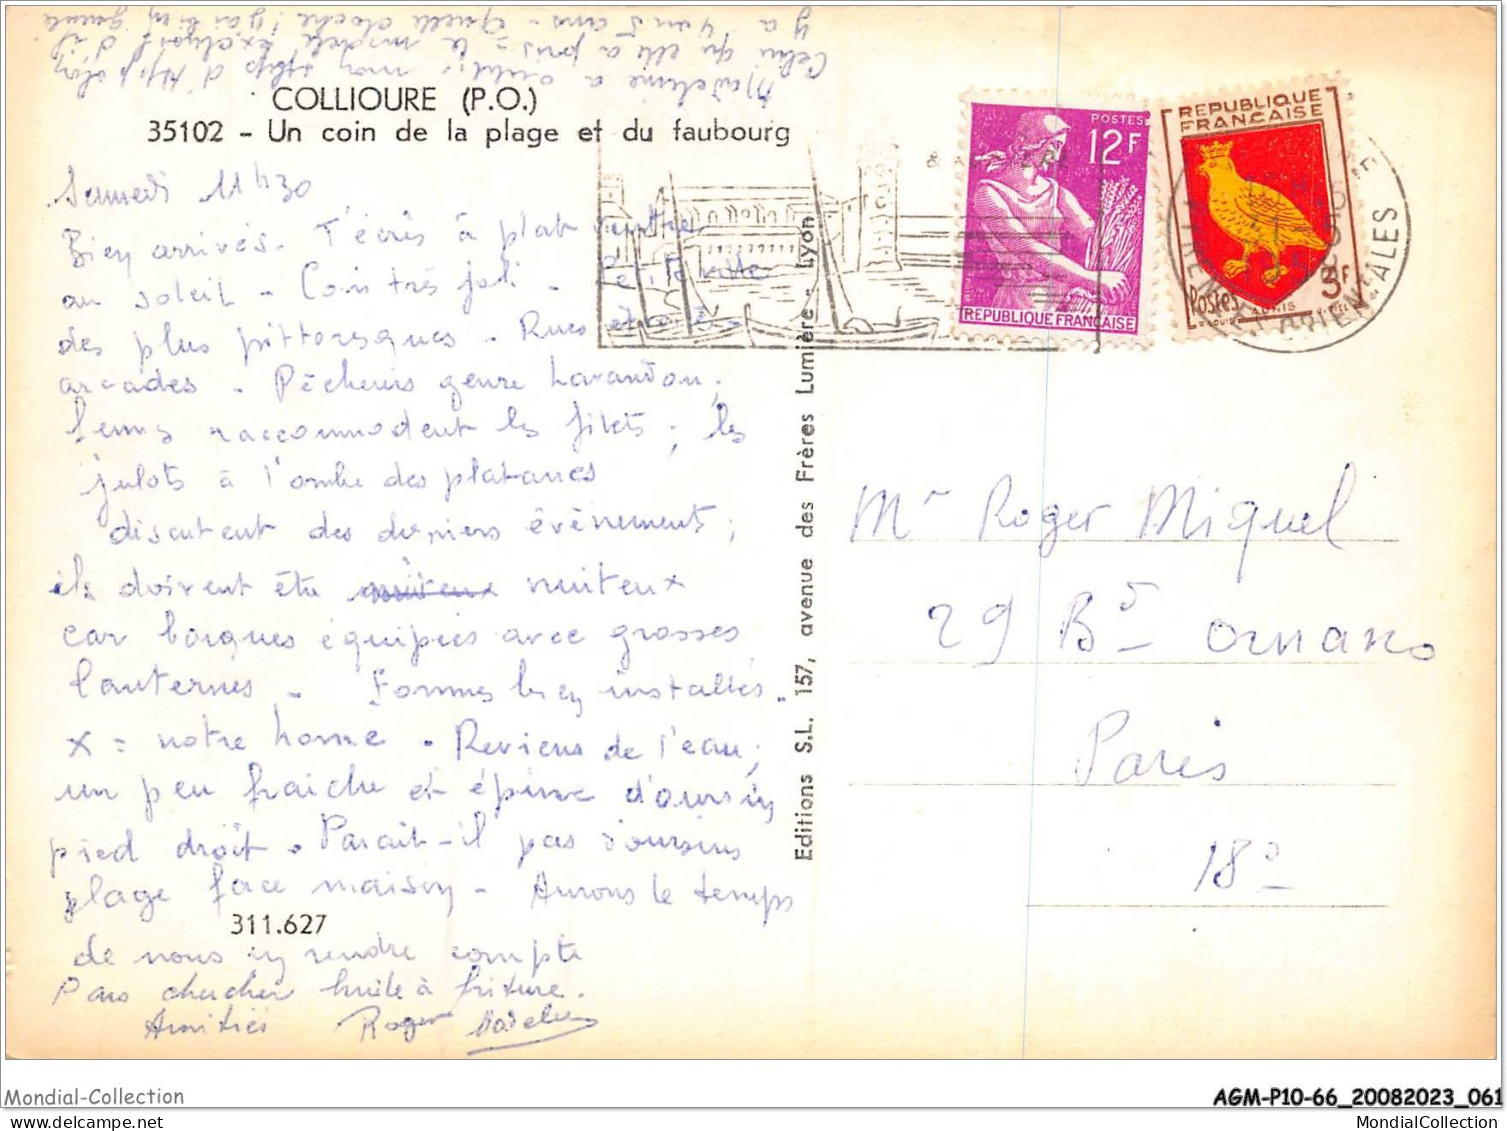 COLLIOURE (P.O.)
35102 - Un coin de la plage et du faubourg
Samedi 11h30
Bien arrivés. T'écris à plat ventre
au soleil - Coin très joli - Petite ville
des plus pittoresques. Rues étroites -
arcades. Pêcheurs genre Lavandou;
femmes raccommodent les filets; les
julots à l'ombre des platanes
discutent des derniers évènements;
ils doivent être nuiteux
car barques équipées avec grosses
lanternes - Sommes bien installés.
X = notre home. Reviens de l'eau;
un peu fraiche et épine d'oursin
pied droit. Parait-il pas d'oursins
plage face maison - Aurons le temps
de nous en rendre compte
Pars chercher huile à friture.
Amitiés Roger Madeleine
Madeleine a oublié mon slip d'
Celui qu'elle a pris = le modèle exclusif
y a 4 ou 5 ans - Quelle cloche!
311.627
Editions S.L. 157, avenue des Frères Lumière - Lyon
POSTES
12F
REPUBLIQUE FRANÇAISE
REPUBLIQUE
FRANÇAISE
Postes
AUNIS
5F
Mr Roger Miquel
29 Bd Ornano
Paris
18e
Mondial-Collection
AGM-P10-66_20082023_061
MondialCollection.com
MondialCollection.com